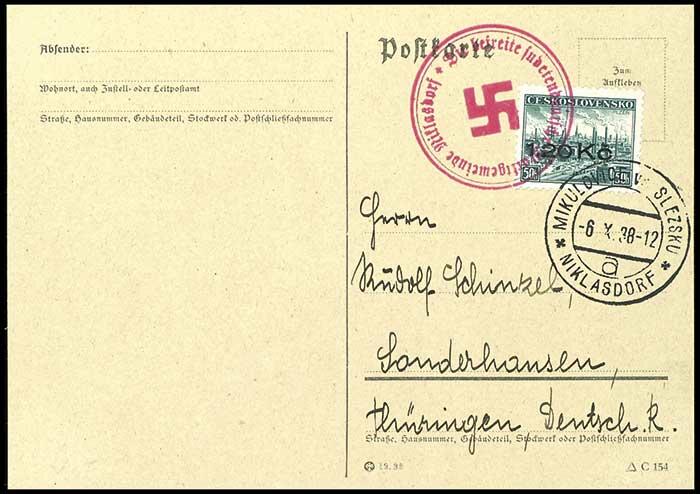 Absender:
Wohnort, auch Zustell- oder Leitpostamt
Straße, Hausnummer, Gebäudeteil, Stockwerk od. Postschließfachnummer
Postkarte
Zum
Aufkleben
Die befreite sudetendeutsche
gemeinde Niklasdorf
ČESKOSLOVENSKO
PLZEŇ
1.20 Kč
50h 0.50
MIKULOVICE VE SLEZSKU
-6. X. 38-12
a
NIKLASDORF
Herrn
Rudolf Schinzel,
Sonderhausen,
Thüringen, Deutsch. R.
Straße, Hausnummer, Gebäudeteil, Stockwerk oder Postschließfachnummer
C 154